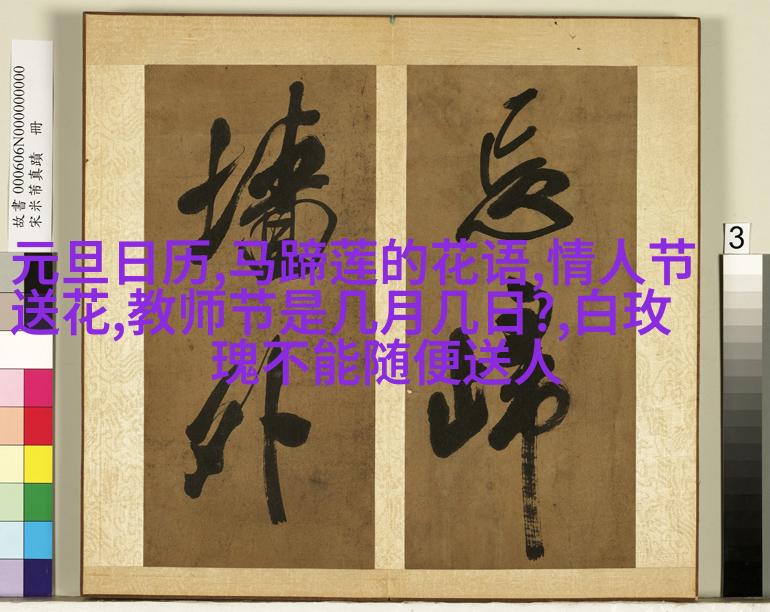 故書 000606N000000000
宋米芾真蹟 冊
忘歸
墻外
元旦日历,马蹄莲的花语,情人节
送花,教师节是几月几日?,白玫
瑰不能随便送人
3